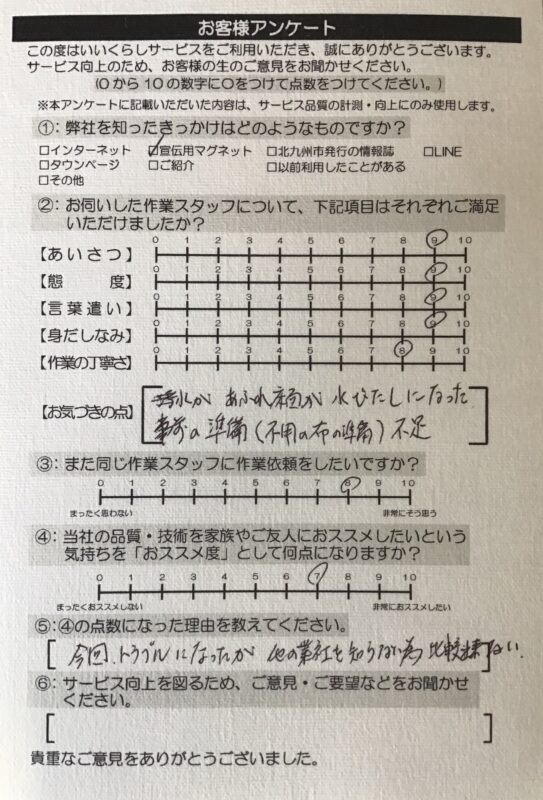 お客様アンケート
この度はいいくらしサービスをご利用いただき、誠にありがとうございます。
サービス向上のため、お客様の生のご意見をお聞かせください。
(0から10の数字に○をつけて点数をつけてください。)
※本アンケートに記載いただいた内容は、サービス品質の計測・向上にのみ使用します。
①:弊社を知ったきっかけはどのようなものですか?
□インターネット ☑宣伝用マグネット □北九州市発行の情報誌 □LINE
□タウンページ □ご紹介 □以前利用したことがある
□その他
②:お伺いした作業スタッフについて、下記項目はそれぞれご満足
いただけましたか?
【あいさつ】 0 1 2 3 4 5 6 7 8 9 10
【態度】 0 1 2 3 4 5 6 7 8 9 10
【言葉遣い】 0 1 2 3 4 5 6 7 8 9 10
【身だしなみ】 0 1 2 3 4 5 6 7 8 9 10
【作業の丁寧さ】 0 1 2 3 4 5 6 7 8 9 10
水が あふれ 床面が 水びたしになった
【お気づきの点】
事前の準備(不用の布の準備)不足
③:また同じ作業スタッフに作業依頼をしたいですか?
0 1 2 3 4 5 6 7 8 9 10
まったく思わない 非常にそう思う
④:当社の品質・技術を家族やご友人におススメしたいという
気持ちを「おススメ度」として何点になりますか?
0 1 2 3 4 5 6 7 8 9 10
まったくおススメしない 非常におススメしたい
⑤:④の点数になった理由を教えてください。
今回、トラブルになったが 他の業社を知らない為 比較出来ない.
⑥:サービス向上を図るため、ご意見・ご要望などをお聞かせ
ください。
貴重なご意見をありがとうございました。